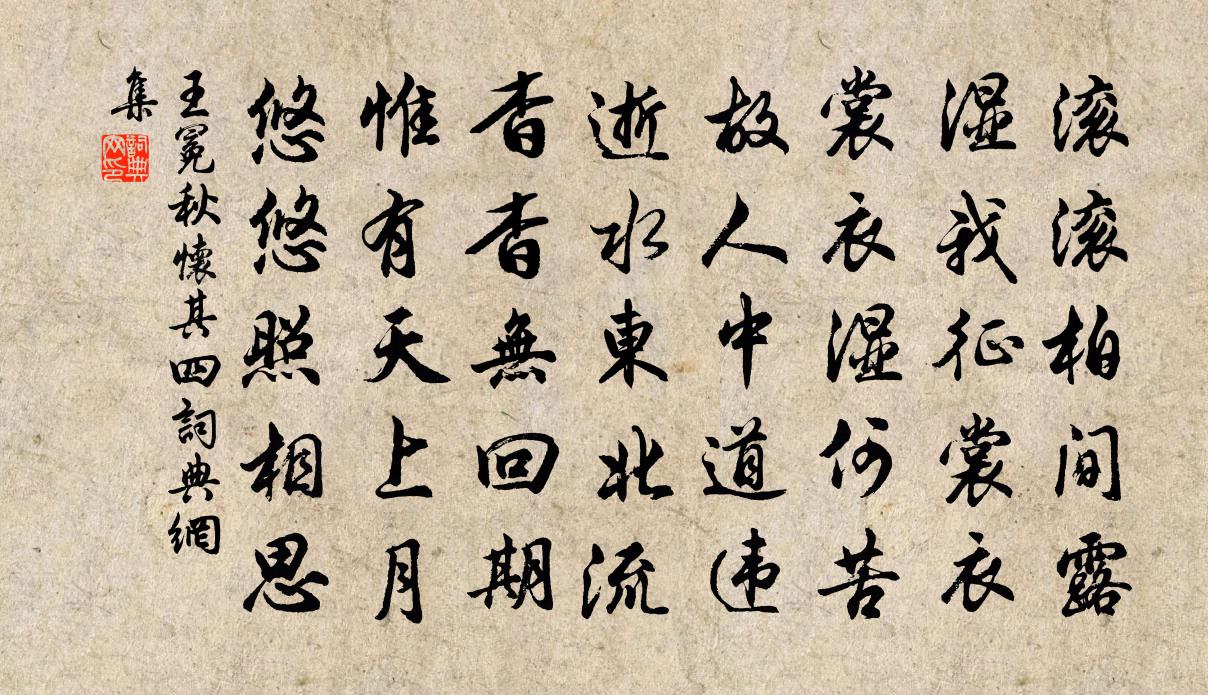 滚滚柏间露
湿我征裳衣
裳衣湿何苦
故人中道违
逝水東北流
杳杳無回期
惟有天上月
悠悠照相思
王冕秋懷其四詞典網
集
詞典
网印